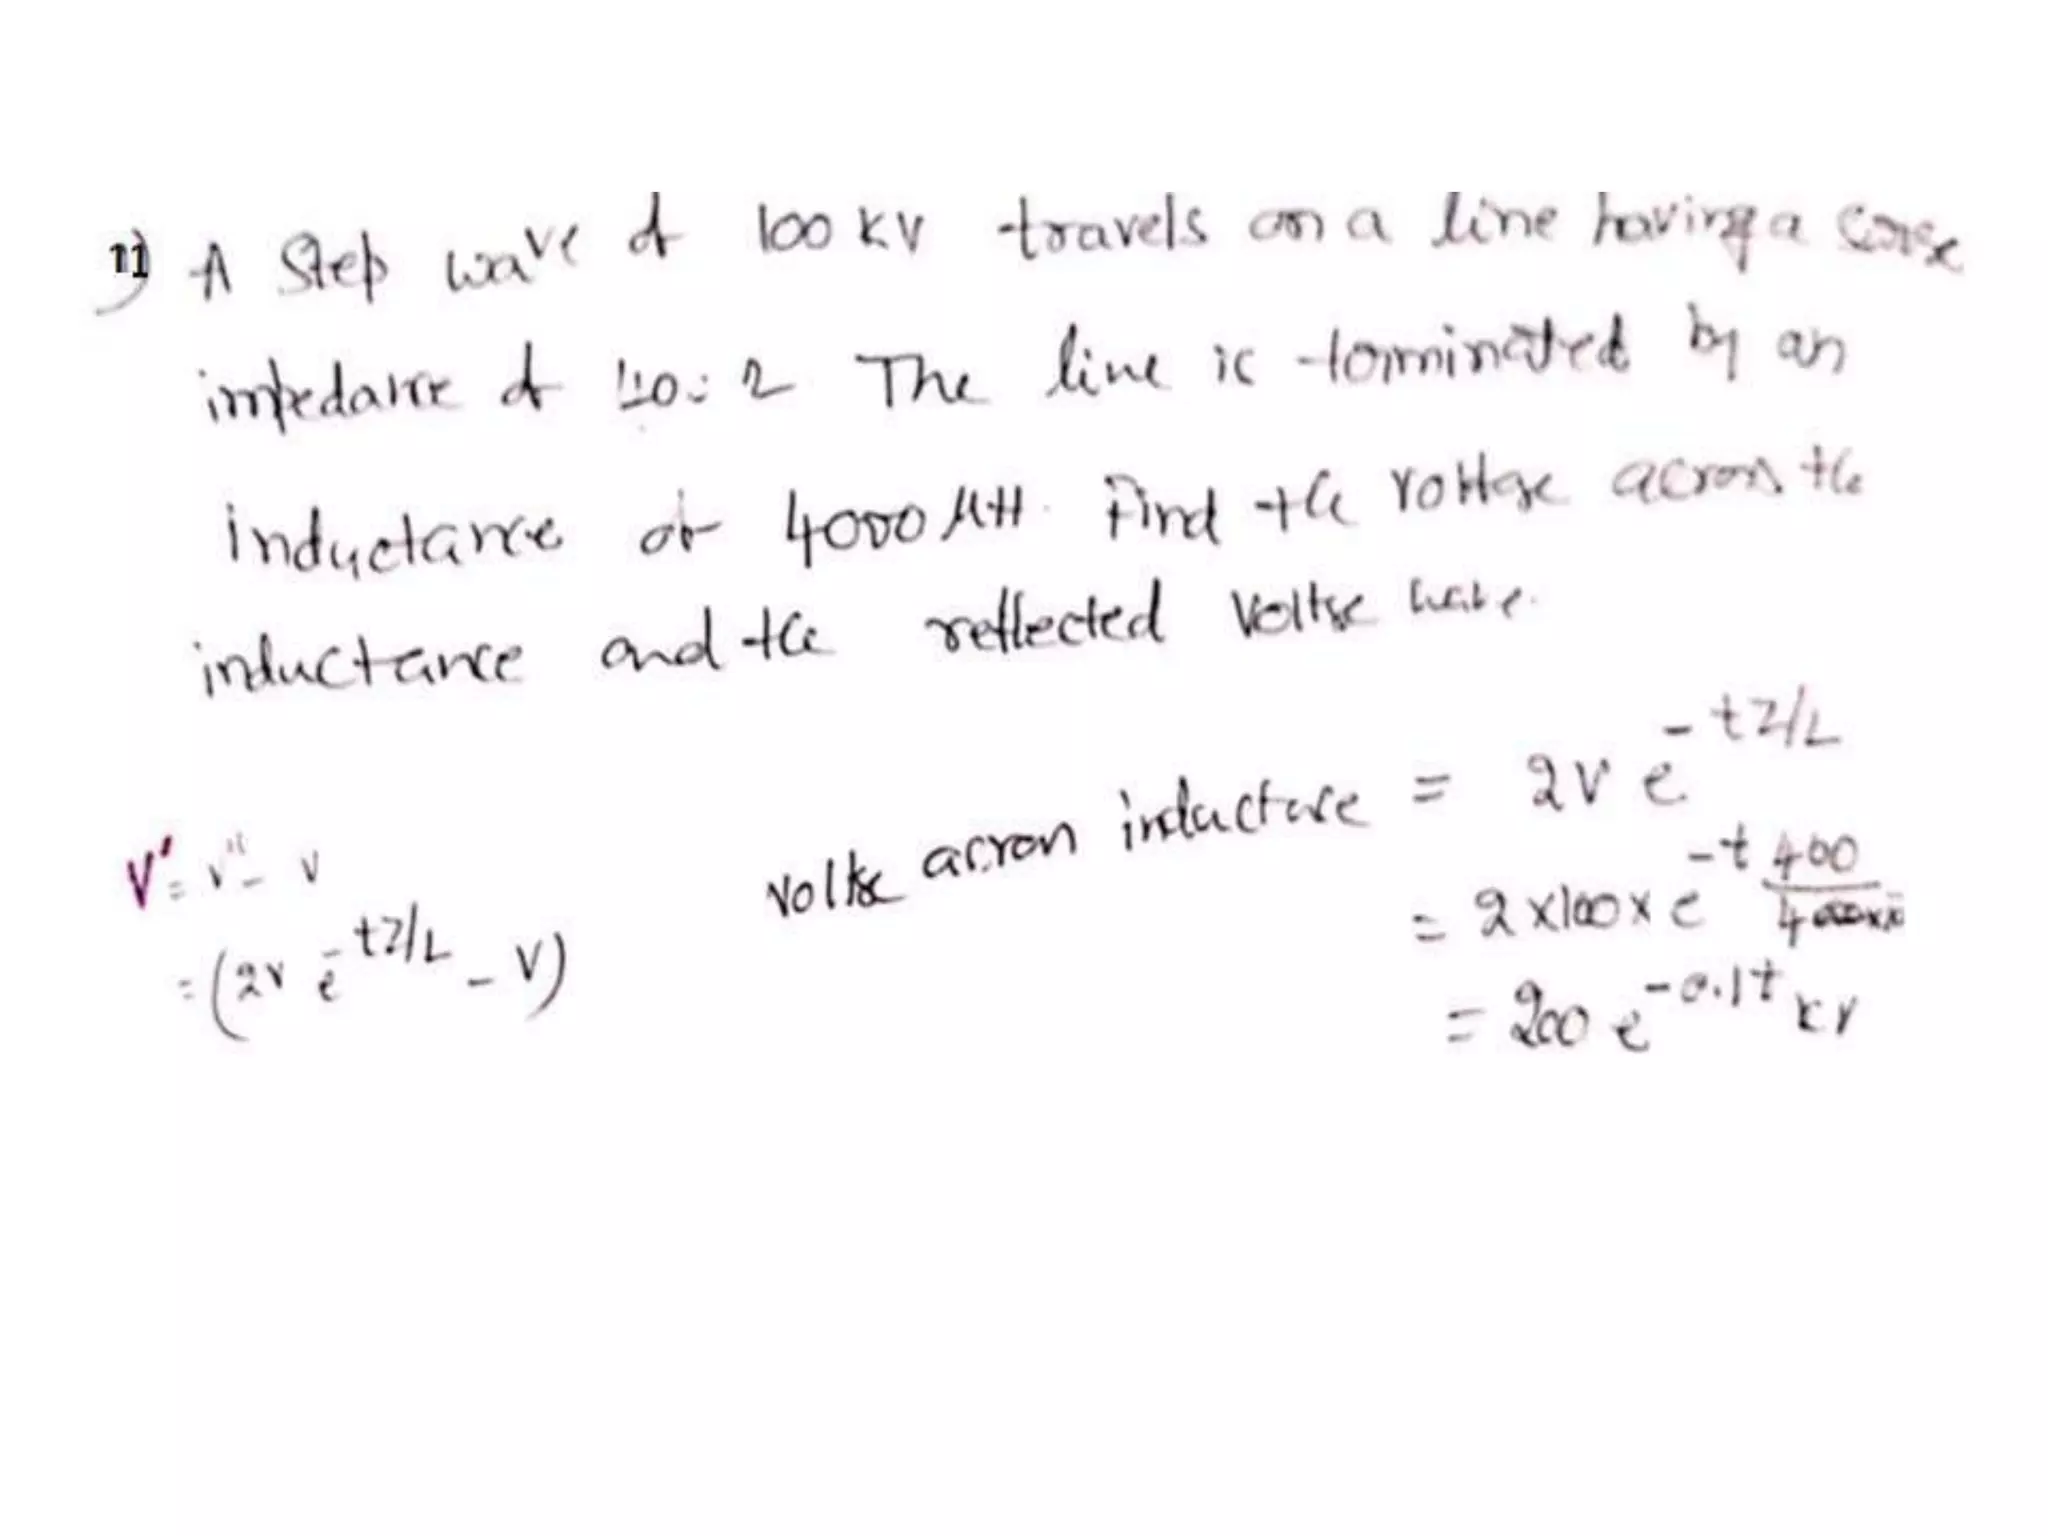 11) A Step wave of 100 KV travels on a line having a surge
impedance of The line is terminated by an
inductance of 4000 μH. Find the voltage across the
inductance and the reflected voltage wave.
voltage across inductance = 2V e^{-tZ/L}
= 2x100x e^{-t 400/4000}
= 200 e^{-0.1t} KV
V' = V'' - V
= (2V e^{-tZ/L} - V)